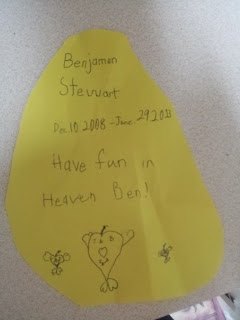 Benjamen
Stewart
Dec. 10 2008 - June 29 2021
Have fun in
Heaven Ben!